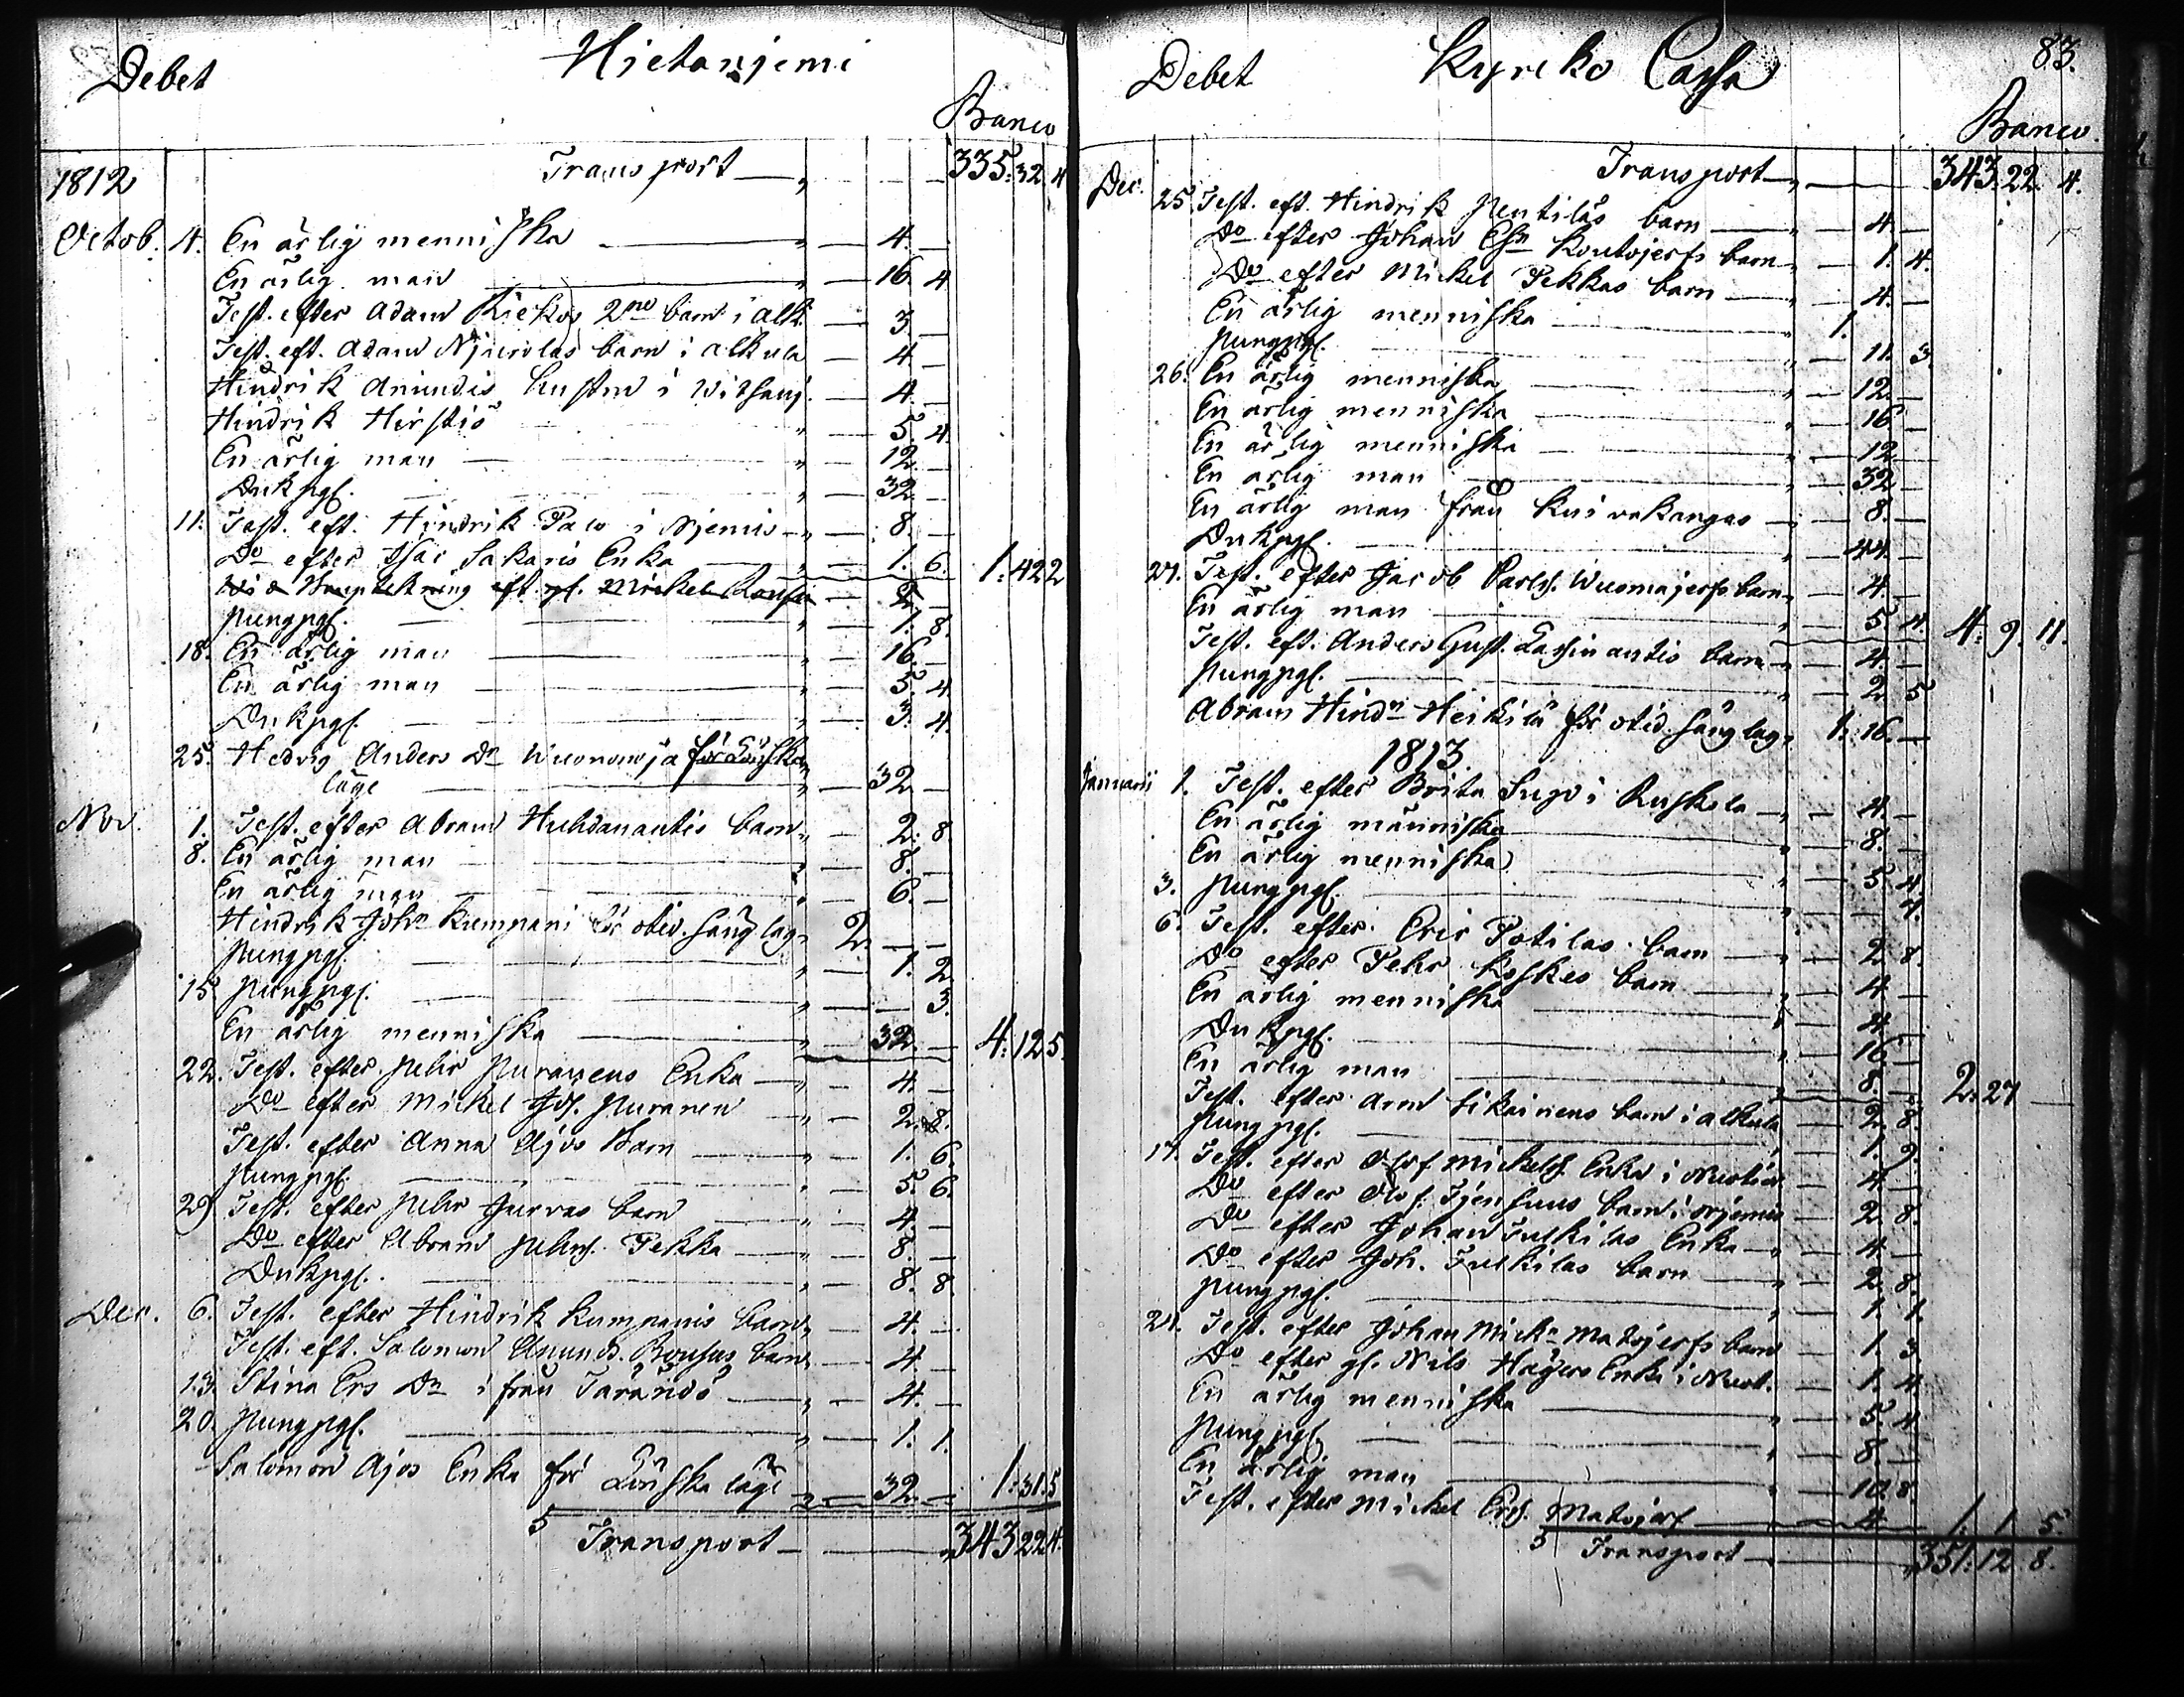 Debet Hietaniemi
Banco
1812 Transport — 335: 32 4
Octob. 4. En ärlig menniska — 4. —
En ärlig man — 16. 4
Test. efter Adam Riekos 2ne barn i Alk. — 3 —
Test. eft. Adam barn i Alkula — 4 —
Hindrik Anundis hustru i Witsanj. — 4. —
Hindrik Hirstiö — 5. 4.
En ärlig man — 12. —
Dukpgr. — 32. —
11. Test. eft. Hindrik Palo i Njemis — 8. —
Do efter Isac Sakaris Enka — 1. 6. 1: 42 2
eft. gl. Mickel — 2. —
Pungpgr. — 1. 8.
18. En ärlig man — 16. —
En ärlig man — 5. 4
Dukpgr. — 3. 4.
25. Hedvig Anders Dr Wuonoroja för Löuska
läge — 32. —
Nov. 1. Test. efter Abram Huhdanantis barn — 2. 8.
8. En ärlig man — 8. —
En ärlig man — 6. —
Hindrik Johns Kumpani för otid. sänglag 2. — —
Pungpgr. — 1. 2
15. Pungpgr. — 3.
En ärlig menniska — 32. — 4: 12 5.
22. Test. efter Pehr Puranens Enka — 4. —
Do efter Mickel Joh. Puranen — 2. 8.
Test. efter Anna Ajos Barn — 1. 6.
Pungpgr. — 5. 6.
29 Test. efter Pehr Jurvas barn — 4. —
Do efter Abram Pehrs. Pekka — 8. —
Dukpgr. — 8. 8.
Dec. 6. Test. efter Hindrik Kumpanis barn — 4. —
Test. eft. Salomon Anunds. Rousus barn — 4 —
13. Stina Ers Dr ifrån Tärändö — 4. —
20. Pungpgr. — 1. 1.
Salomon Ajos Enka för Löuska läge — 32. — 1: 31. 5
5 Transport — 343 22 4.
Debet Kyrcko Cassa 83.
Banco.
Dec. Transport — 343. 22. 4.
25 Test. eft. Hindrik Pentiläs barn — 4. —
Do efter Johan Ersn Koutojerfs barn — 1. 4.
Do efter Mickel Pekkas barn — 4. —
En ärlig menniska — 1.
Pungpgr. — 11. 3.
26. En ärlig menniska — 12. —
En ärlig menniska — 16 —
En ärlig menniska — 12
En ärlig man — 32 —
En ärlig man från Kuivakangas — 8. —
Dukpgr. — 44. —
27. Test. efter Jacob Carls. Wuomajerfs barn — 4. —
En ärlig man — 5. 4. 4. 9. 11.
Test. eft. Anders Gust. Lassinantis barn — 4. —
Pungpgr. — 2. 5
Abram Hindn Heikilä för otid. sänglag 1. 16. —
1813.
Januarii 1. Test. efter Brita i Ruskola — 4. —
En ärlig människa — 8. —
En ärlig menniska — 5. 4.
3. Pungpgr. — 4.
6. Test. efter Eric Potilas barn — 2. 8.
Do efter Pehr Koskes barn — 4 —
En ärlig menniska — 4. —
Dukpgr. — 16. —
En ärlig man — 8. — 2. 27 —
Test. efter Aron Likainens barn i Alkula — 2. 8.
Pungpgr. — 1. 9.
17. Test. efter Olof Mickels. Enka i — 4. —
Do efter Olof barn i Njemis — 2. 8.
Do efter Johan Tulkilas Enka — 4. —
Do efter Joh. Tulkilas barn — 2. 8.
Pungpgr. — 1. 1.
24. Test. efter Johan Mickn Matojerfs barn — 1. 3.
Do efter gl. Nils Hägers Enka i — 1. 4.
En ärlig menniska — 5. 4.
Pungpgr. — 8. —
En ärlig man — 10. 8.
Test. efter Mickel Ers. Matojerf — 4. — 1. 1. 5.
5 Transport — 351. 12. 8.